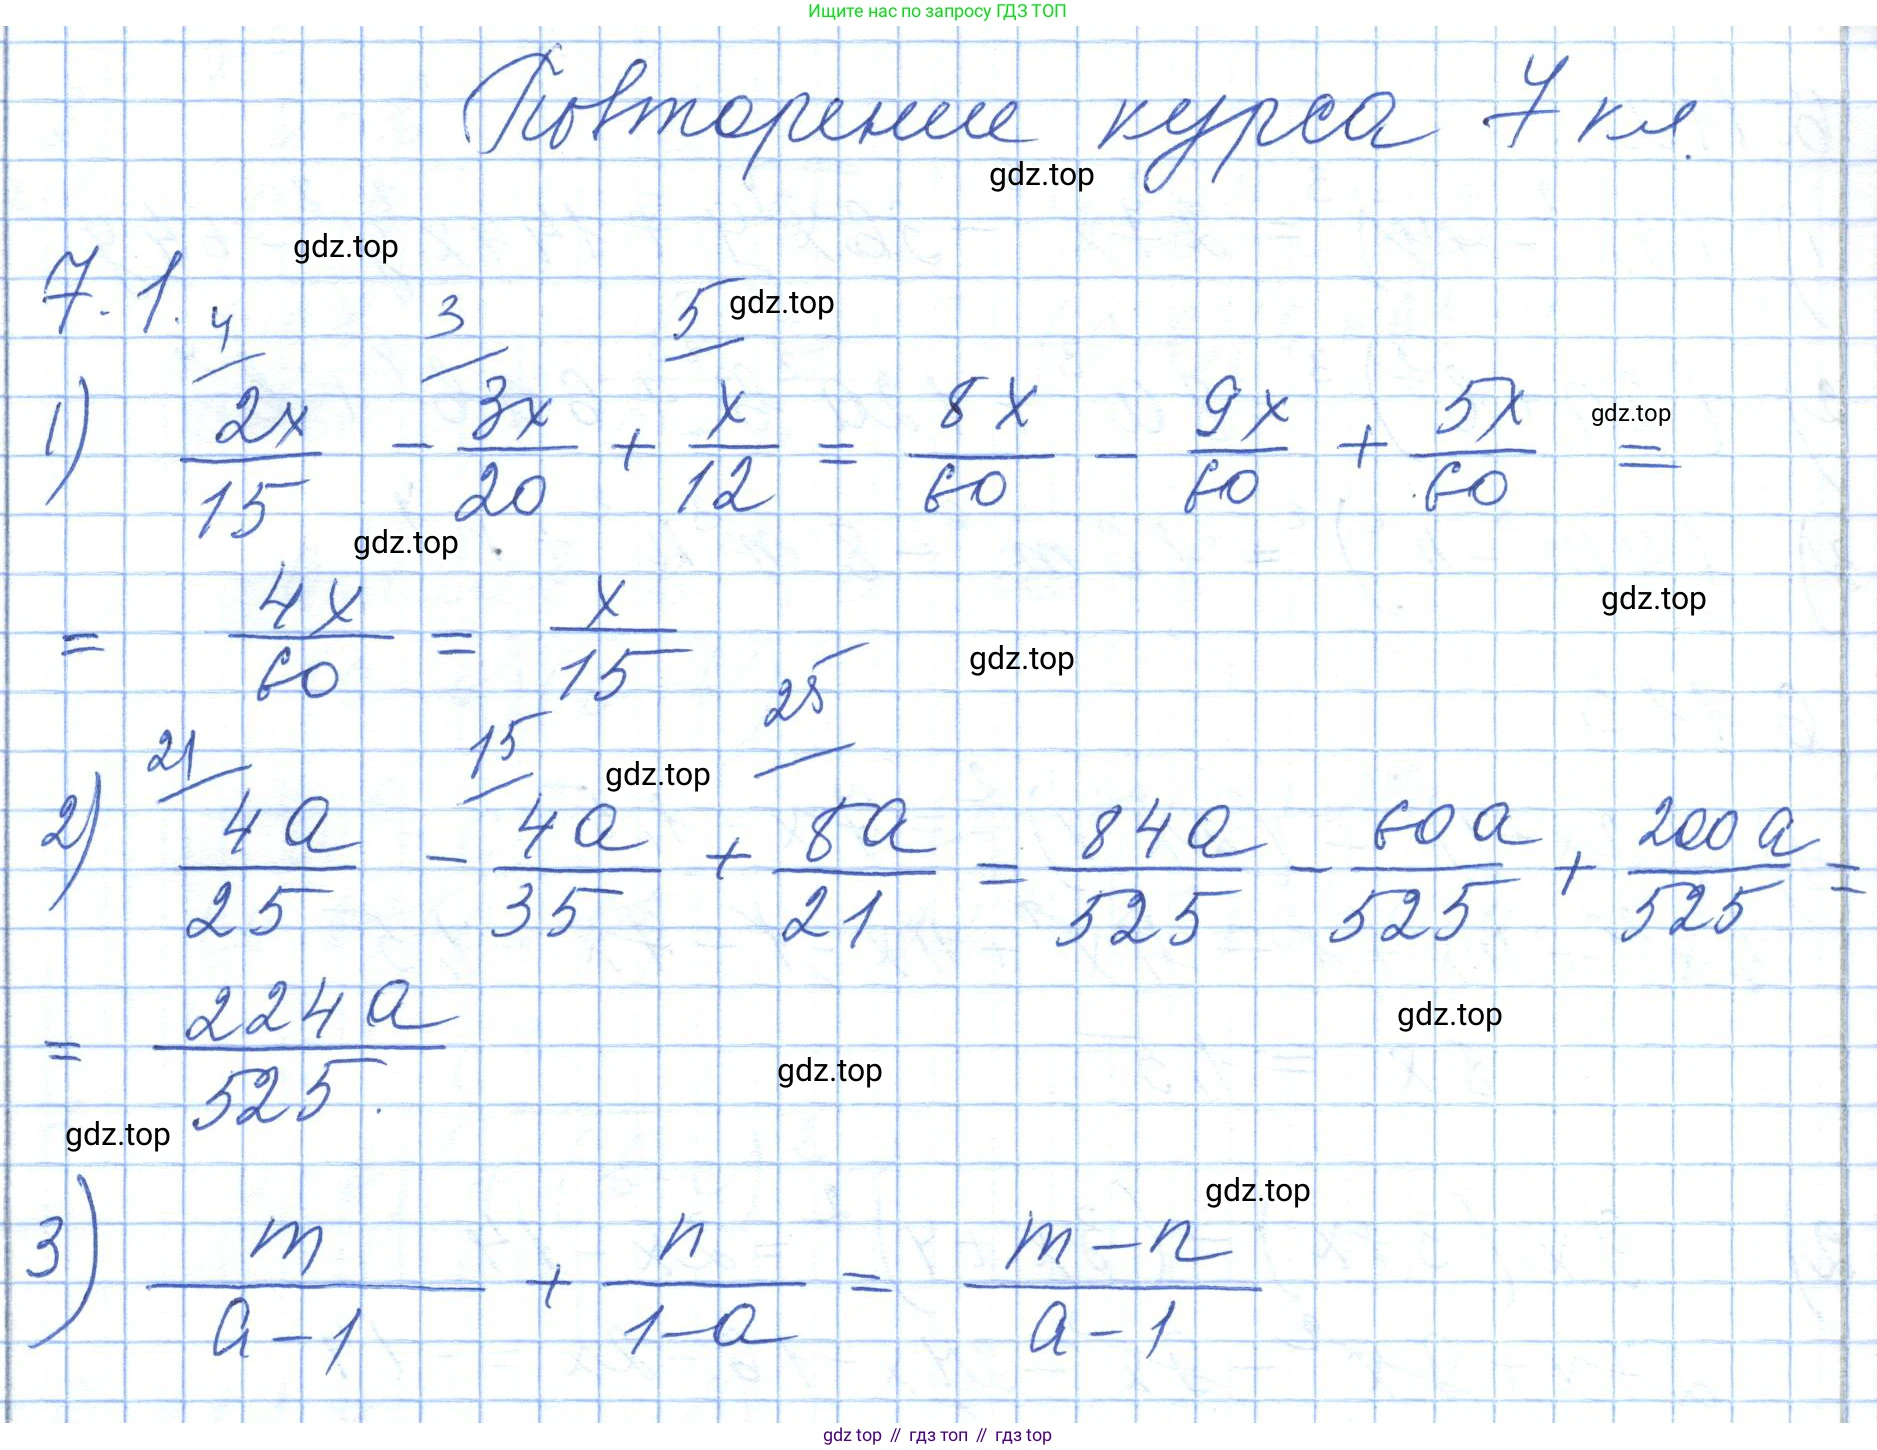 Ищите нас по запросу ГДЗ ТОП
Повторение курса 7 кл.
gdz.top
gdz.top
7.1.
gdz.top
4 3 5
1) 2x/15 - 3x/20 + x/12 = 8x/60 - 9x/60 + 5x/60 =
gdz.top
gdz.top
= 4x/60 = x/15
gdz.top
gdz.top
21 15 25
gdz.top
2) 4a/25 - 4a/35 + 8a/21 = 84a/525 - 60a/525 + 200a/525 =
= 224a/525.
gdz.top
gdz.top
gdz.top
gdz.top
3) m/(a-1) + n/(1-a) = (m-n)/(a-1)
gdz top // гдз топ // гдз top